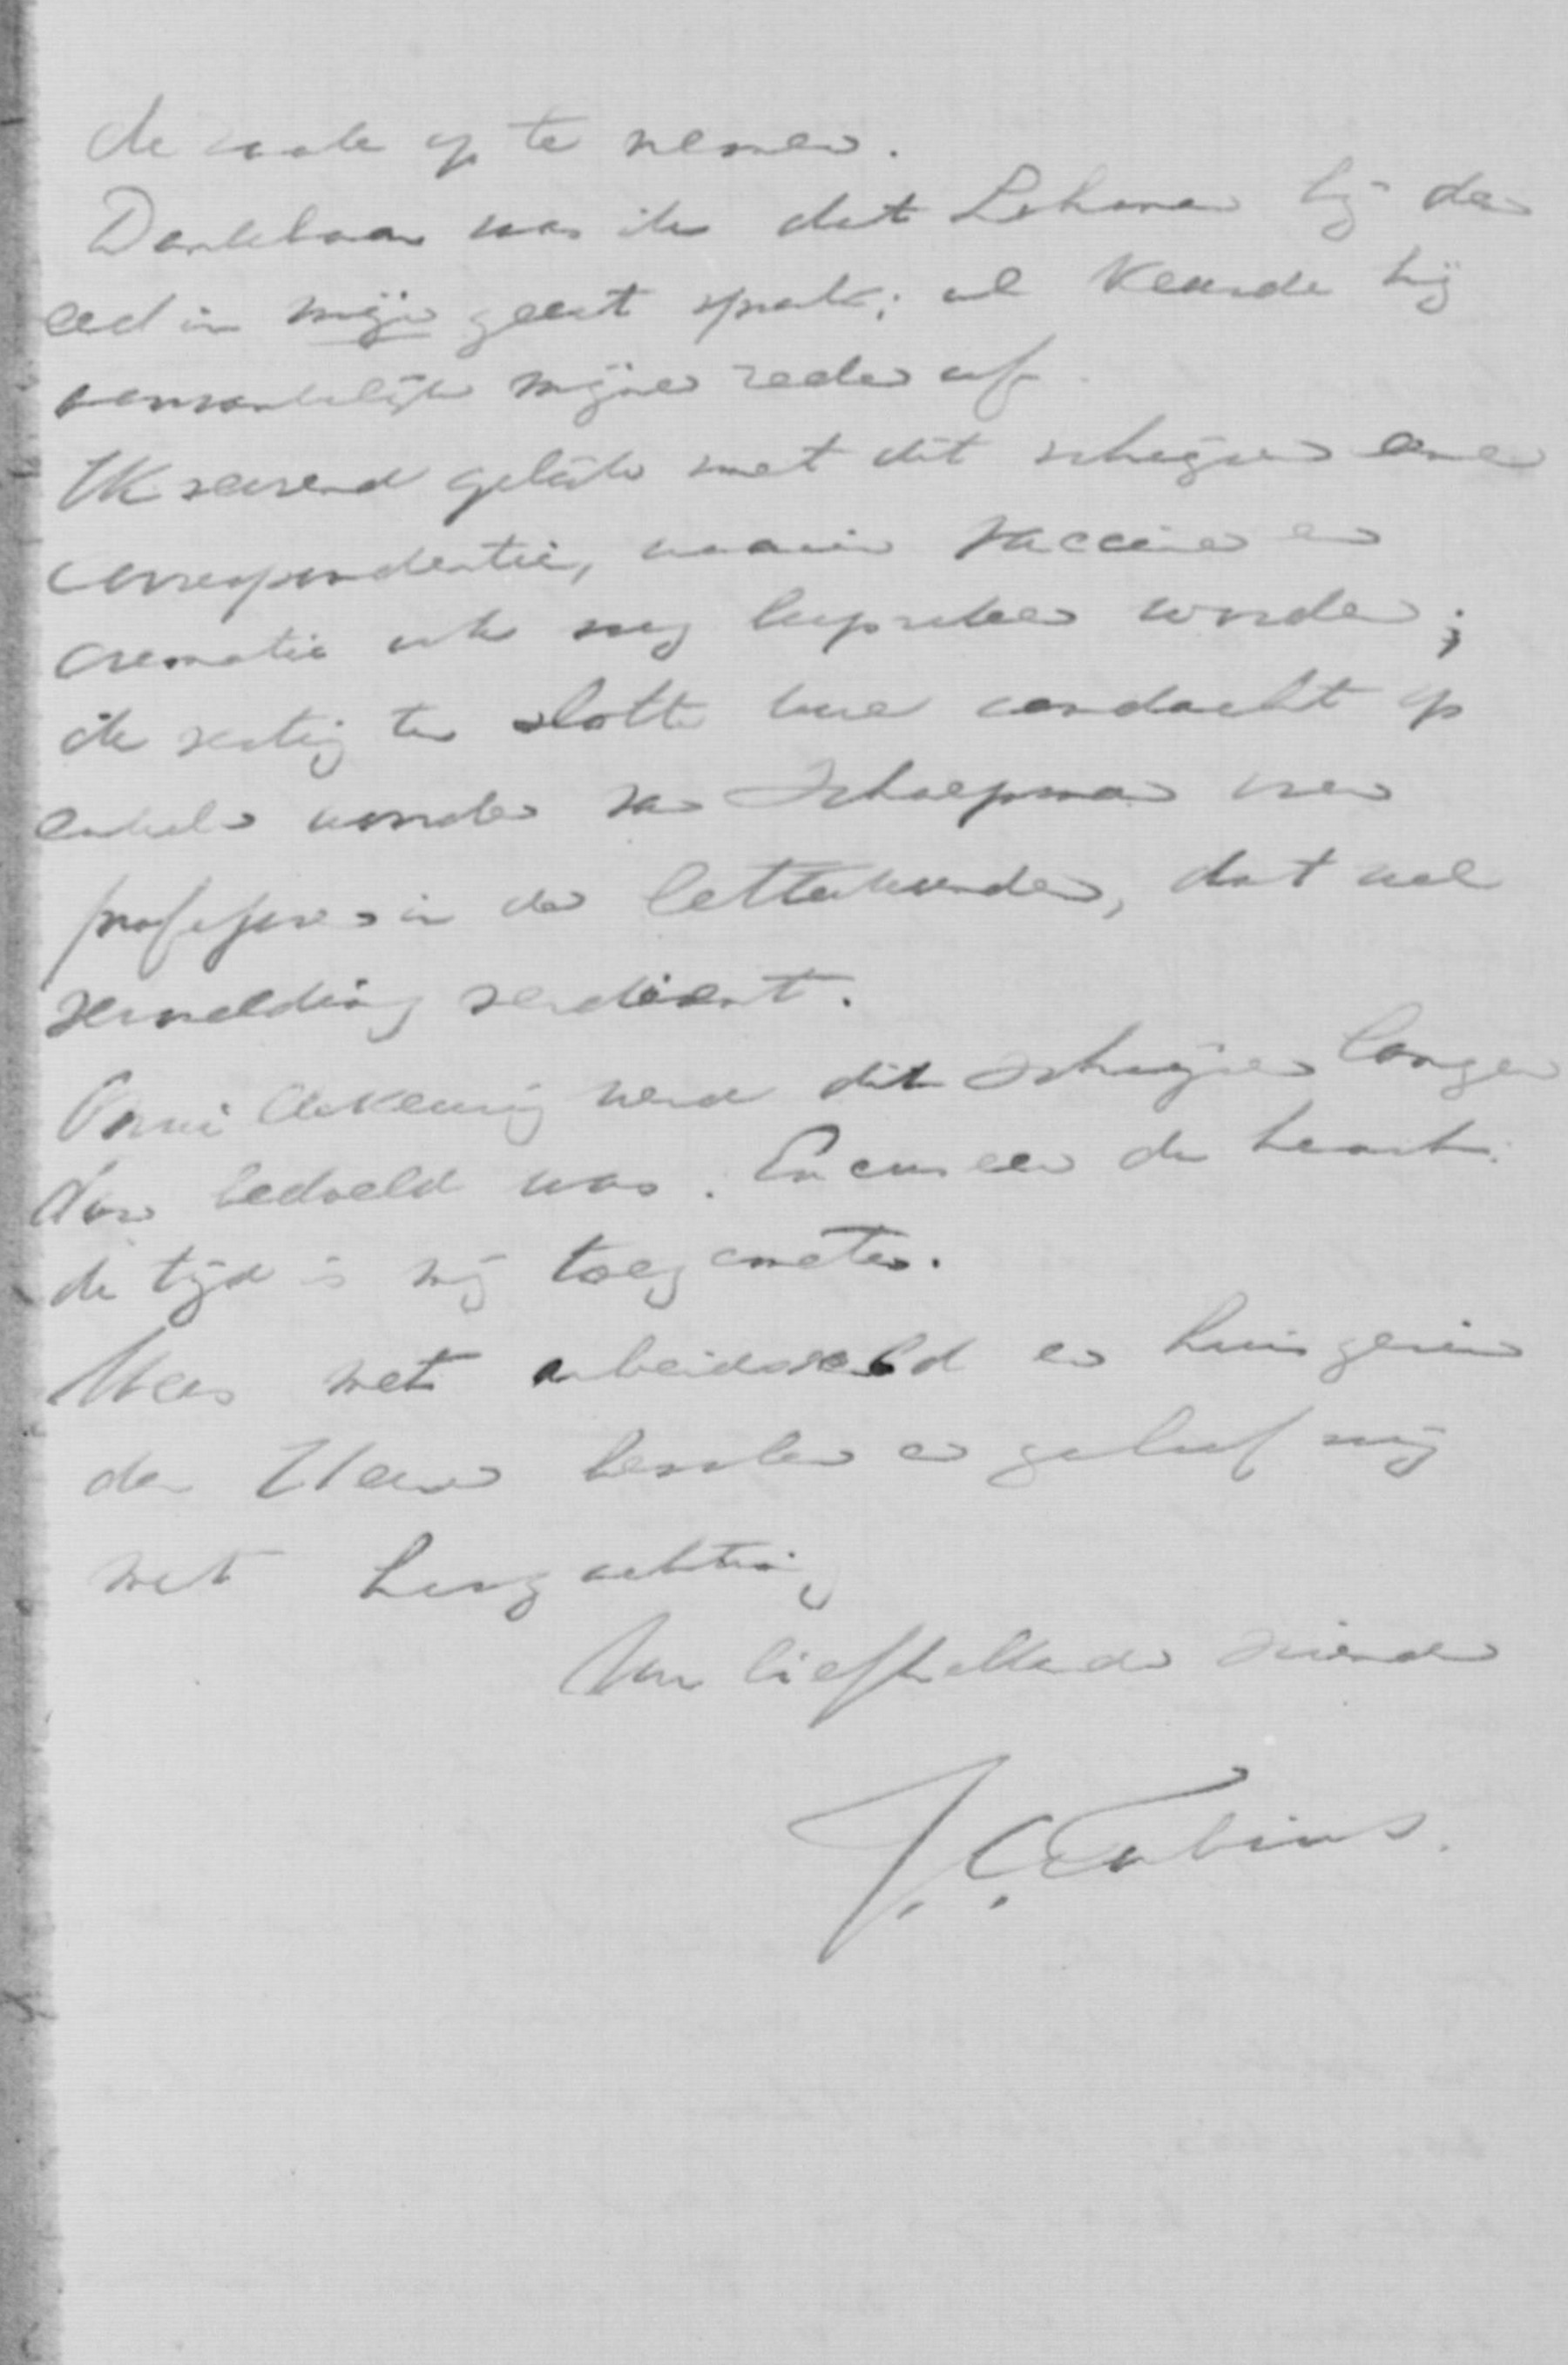 de zaak op te nemen.
Dankbaar was ik dat Lohman bij den
eed in mijn geest sprak; al keurde hij
aanvankelijk mijne rede af.
Ik verzend gelijk met dit schrijven eene
correspondentie, waarin vaccine en
crematie ook nog besproken worden;
ik vestig ten slotte uwe aandacht op
enkele woorden van Schaepman over
professoren in de letterkunde, dat wel
vermelding verdient.
Onwillekeurig werd dit schrijven langer
dan bedoeld was. Excuseer de haast.
de tijd is mij toegemeten.
Wees met arbeidsveld en huisgezin
den Heere bevolen en geloof mij
met hoogachting
Uw liefhebbende vriend
J. C. Fabius.